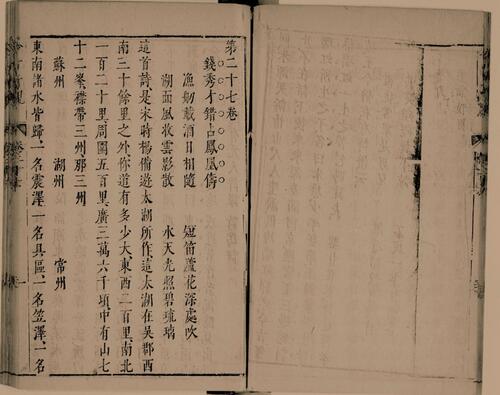 第二十七卷
錢秀才錯占鳳凰儔
漁船載酒日相隨　短笛蘆花深處吹
湖面風收雲影散　水天光照碧琉璃
這首詩是宋時楊備遊太湖所作、這太湖在吳郡西
南三十餘里之外、你道有多少大、東西二百里、南北
一百二十里、周圍五百里、廣三萬六千頃、中有山七
十二峯、襟帶三州、那三州
蘇州　湖州　常州
東南諸水皆歸、一名震澤、一名具區、一名笠澤、一名